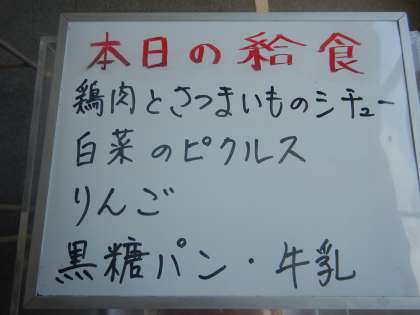 本日の給食
鶏肉とさつまいものシチュー
白菜のピクルス
りんご
黒糖パン・牛乳